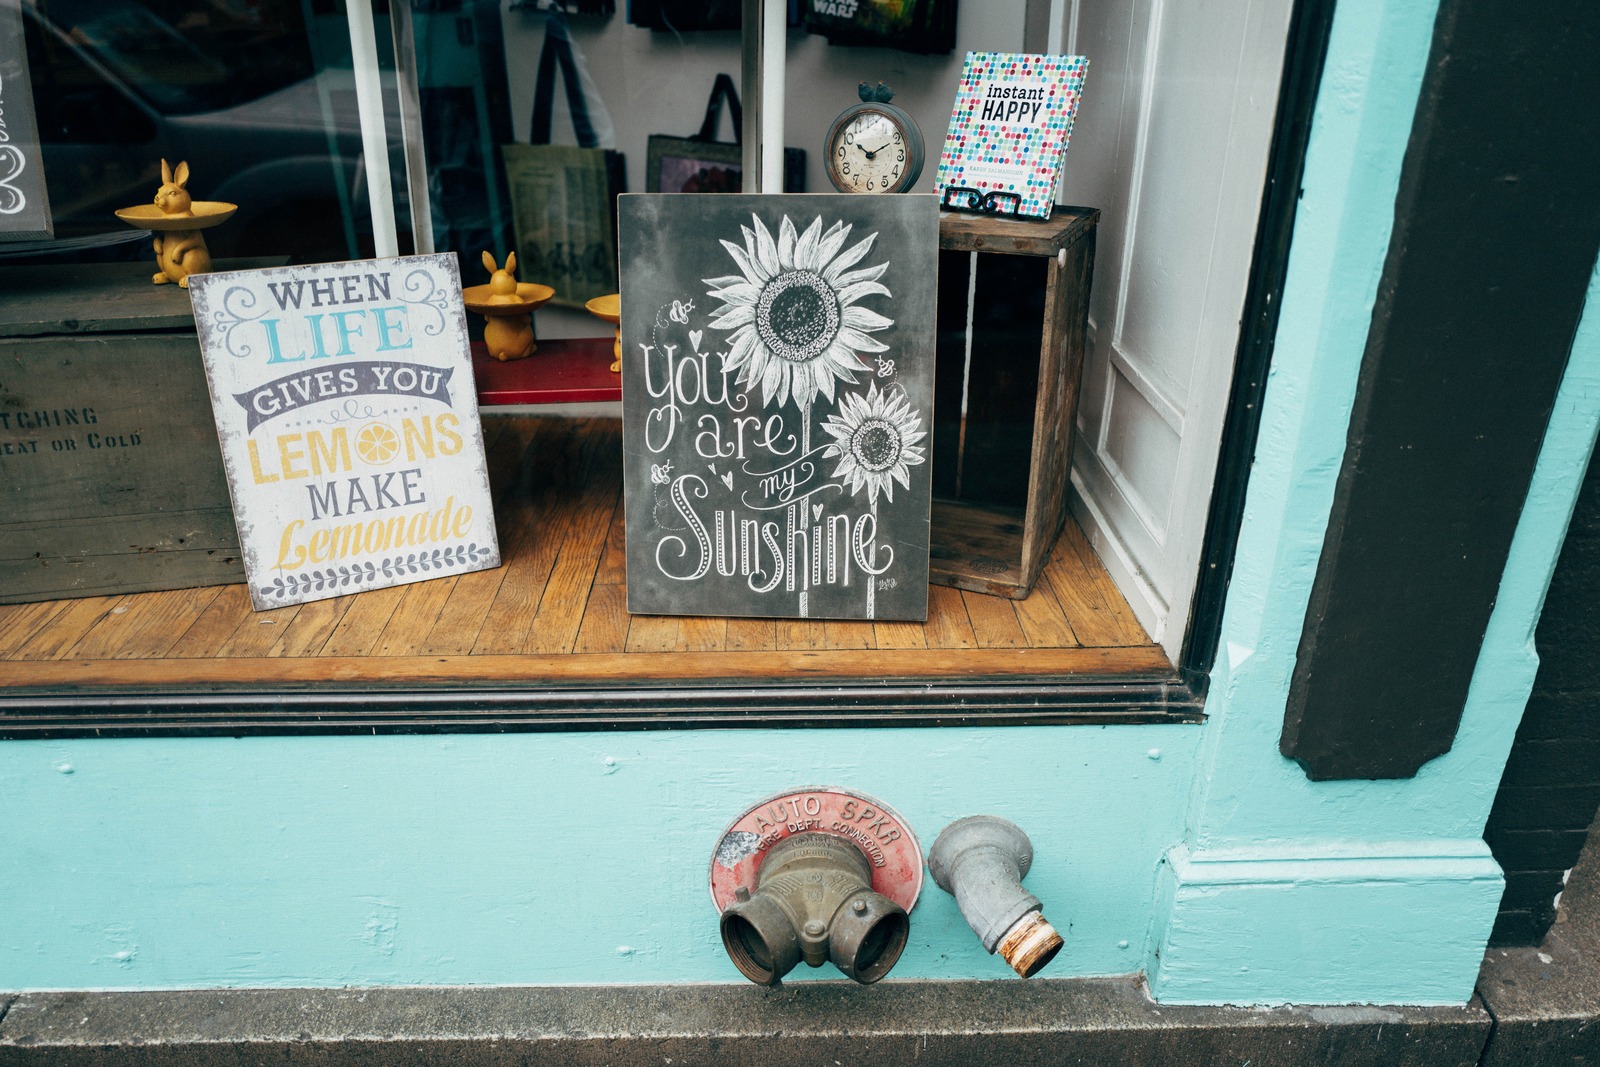 STAR
WARS
instant
HAPPY
KAREN SALMANSOHN
WHEN
LIFE
GIVES YOU
LEMONS
MAKE
Lemonade
You
are
my
Sunshine
TCHING
EAT OR COLD
AUTO SPKR
FIRE DEPT. CONNECTION